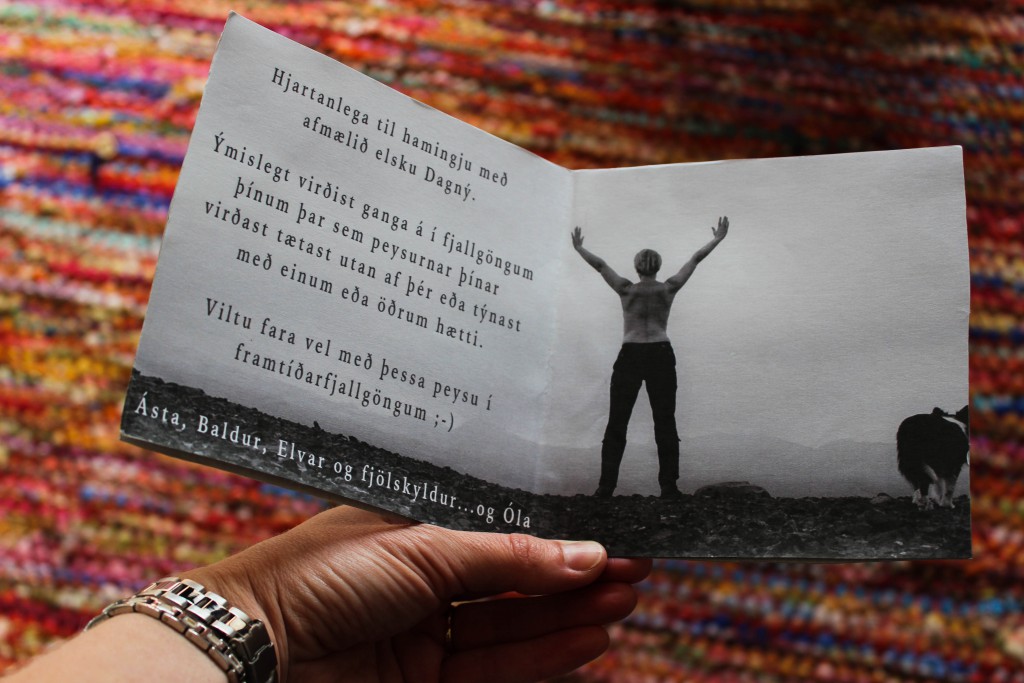 Hjartanlega til hamingju með
afmælið elsku Dagný.
Ýmislegt virðist ganga á í fjallgöngum
þínum þar sem peysurnar þínar
virðast tætast utan af þér eða týnast
með einum eða öðrum hætti.
Viltu fara vel með þessa peysu í
framtíðarfjallgöngum ;-)
Ásta, Baldur, Elvar og fjölskyldur...og Óla